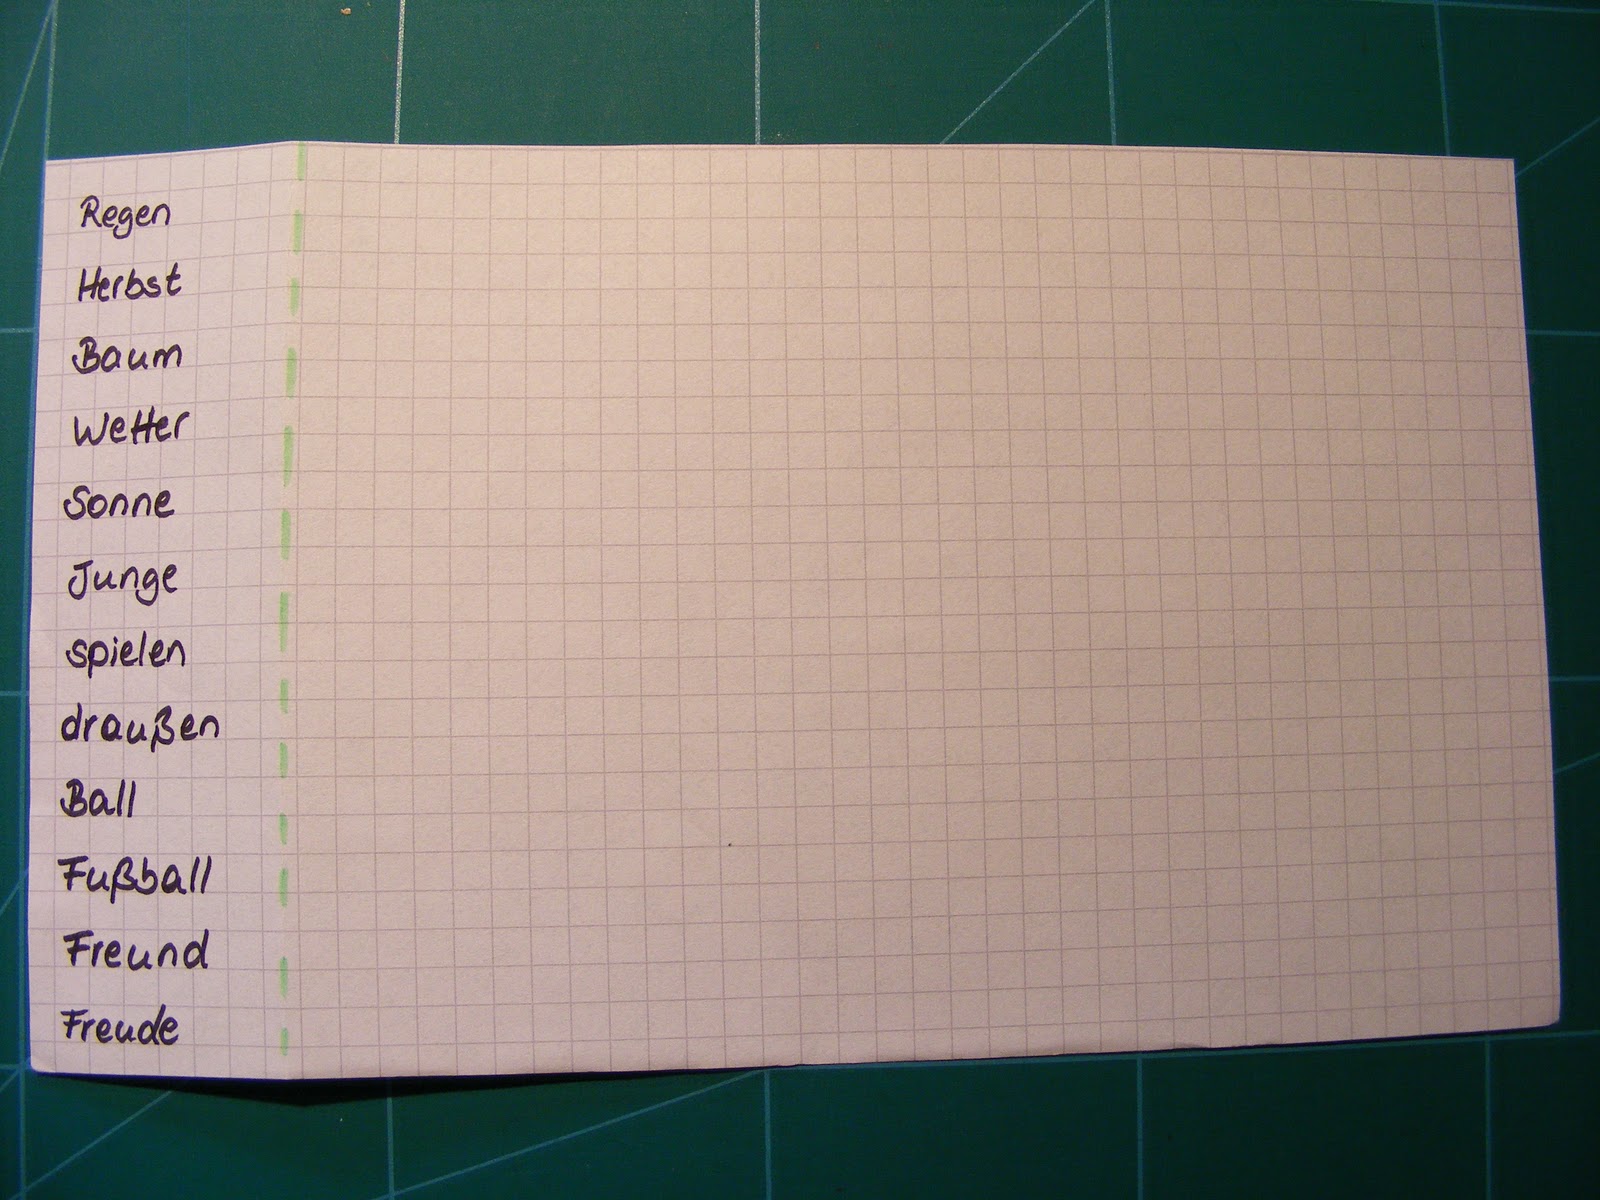 Regen
Herbst
Baum
Wetter
Sonne
Junge
spielen
draußen
Ball
Fußball
Freund
Freude